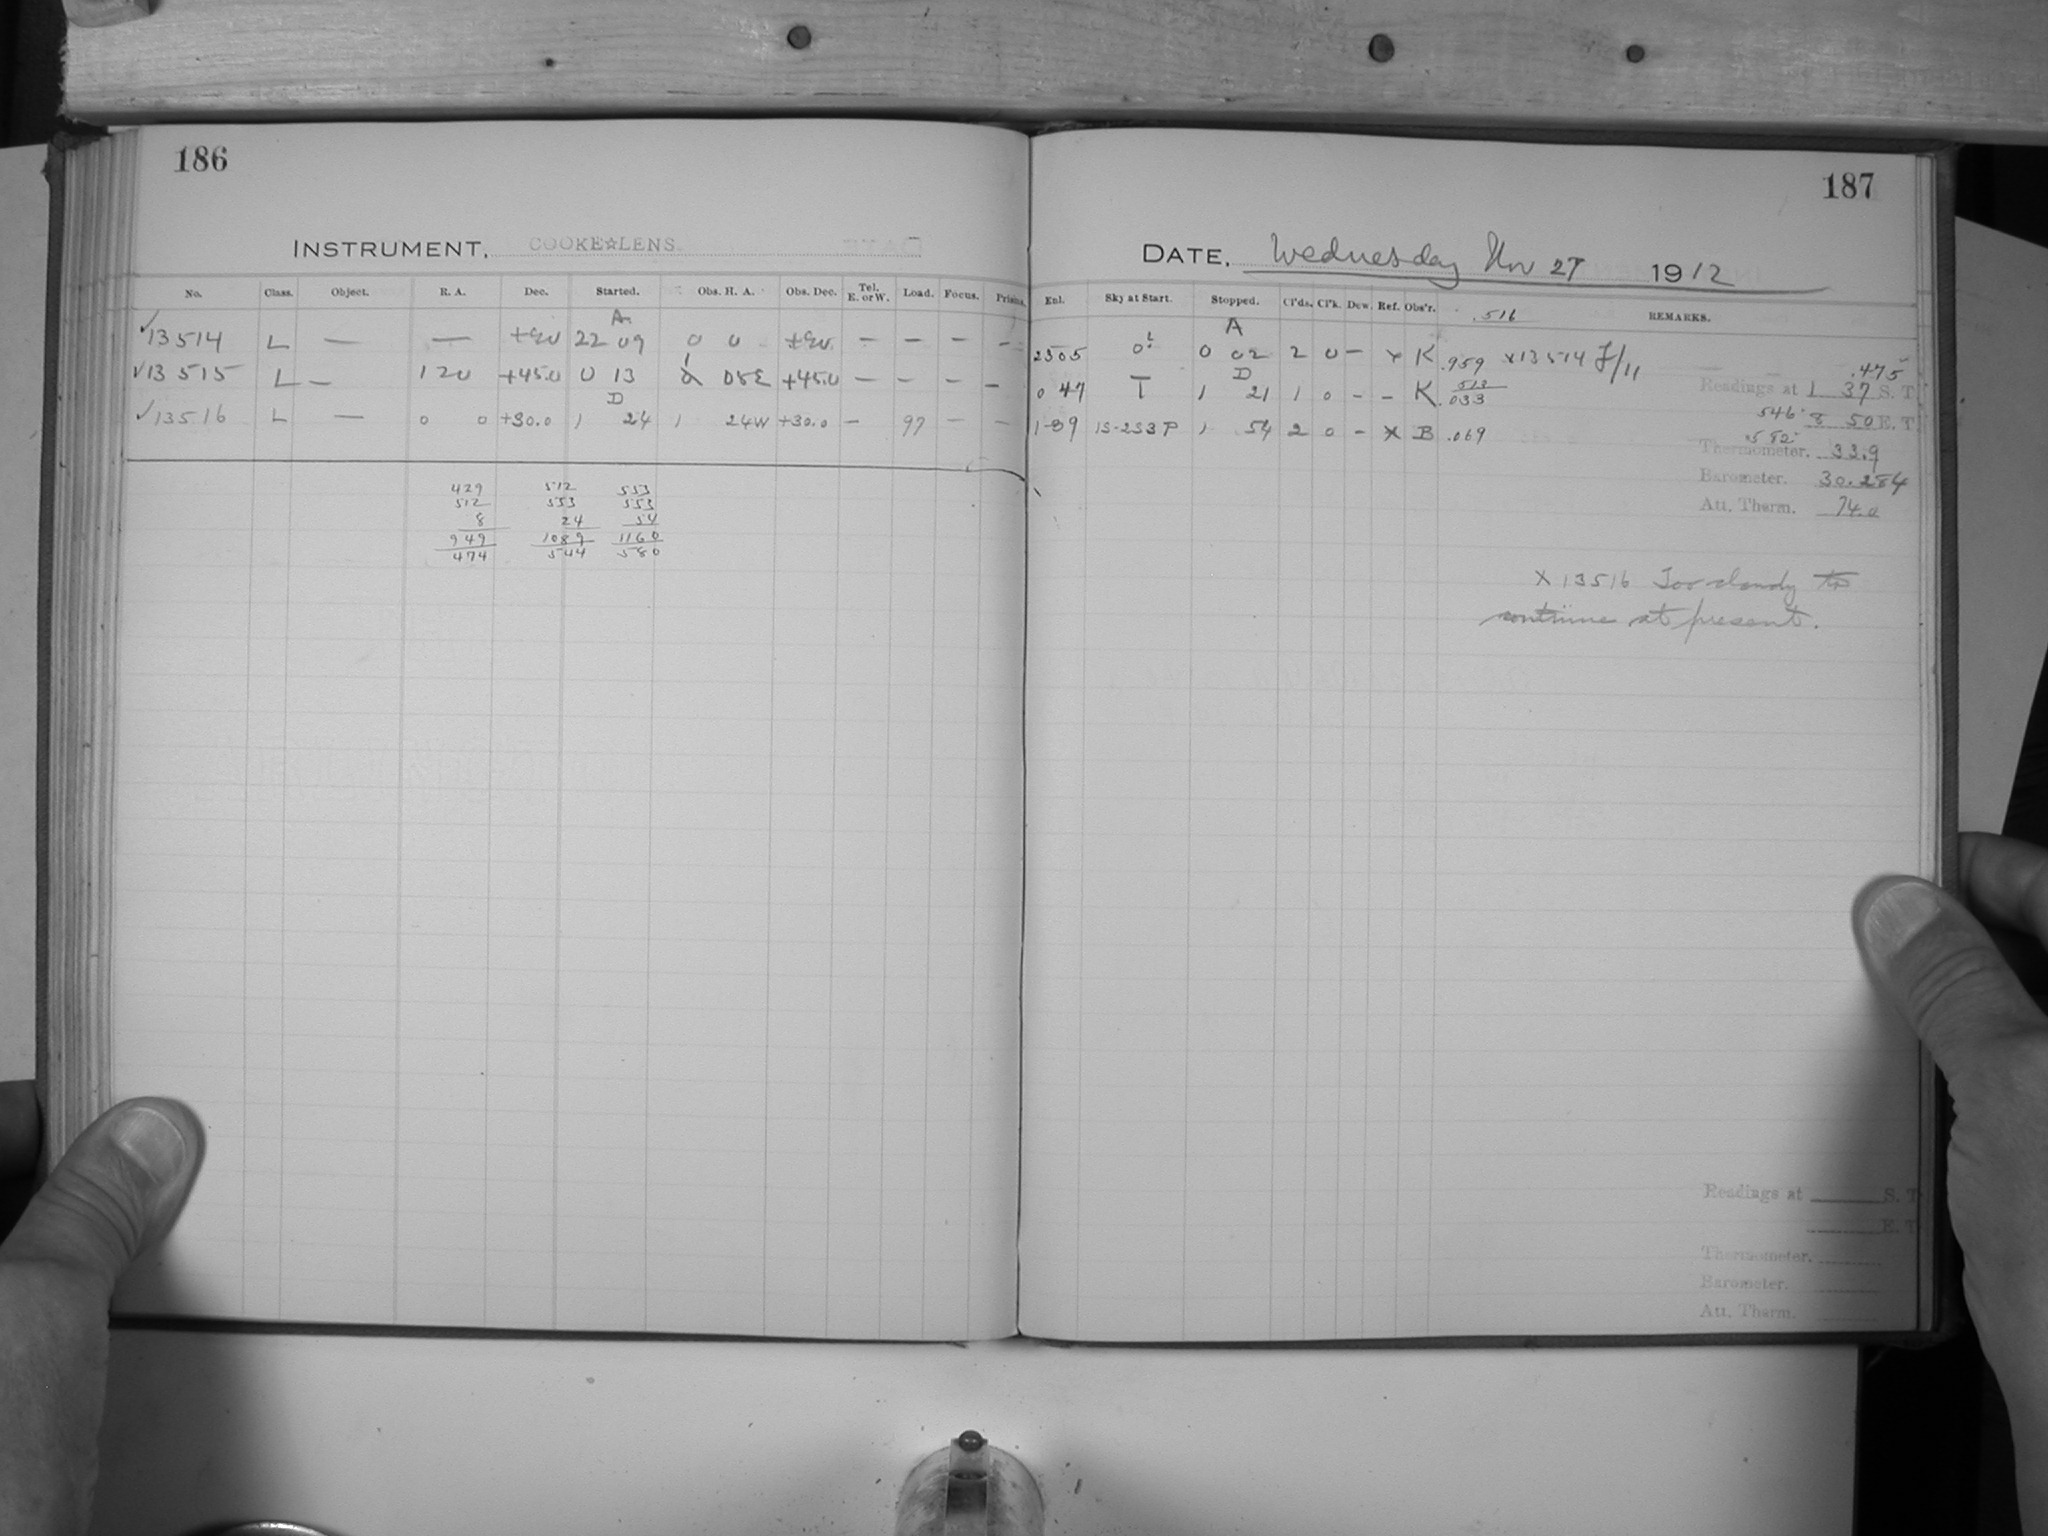 186
INSTRUMENT, COOKE☆LENS.
No. Class. Object. R. A. Dec. Started. Obs. H. A. Obs. Dec. Tel. E. or W. Load. Focus. Prisms.
A
✓13514 L — — +90 22 09 0 0 +90 — — — —
✓13515 L — 1 20 +45.0 0 13 1 05E +45.0 — — — —
D
✓13516 L — 0 0 +30.0 1 24 1 24W +30.0 — 97 — —
429 512 553
512 553 553
8 24 54
949 1089 1160
474 544 580
187
DATE, Wednesday Nov 27 1912
Enl. Sky at Start. Stopped. Cl'ds. Cl'k. Dew. Ref. Obs'r. .516 REMARKS.
A
2305 0 02 2 0 — x K .959 x13514 f/11
.475
D
0 47 T 1 21 1 0 - - K .513
.033
Readings at 1 37 S. T.
546 8 50 E. T.
1 39 1 54 2 0 - x B .069
582
Thermometer. 33.9
Barometer. 30.284
Att. Therm. 74.0
X 13516 Too cloudy to
continue at present.
Readings at S. T.
E. T.
Thermometer.
Barometer.
Att. Therm.